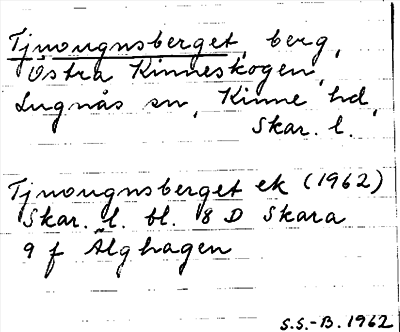 Tjuougnsberget, berg,
Östra Kinneskogen,
Lugnås sn, Kinne hd,
Skar. l.
Tjuougnsberget ek (1962)
Skar. l. bl. 8 D Skara
9 f Älghagen
S.S.-B. 1962